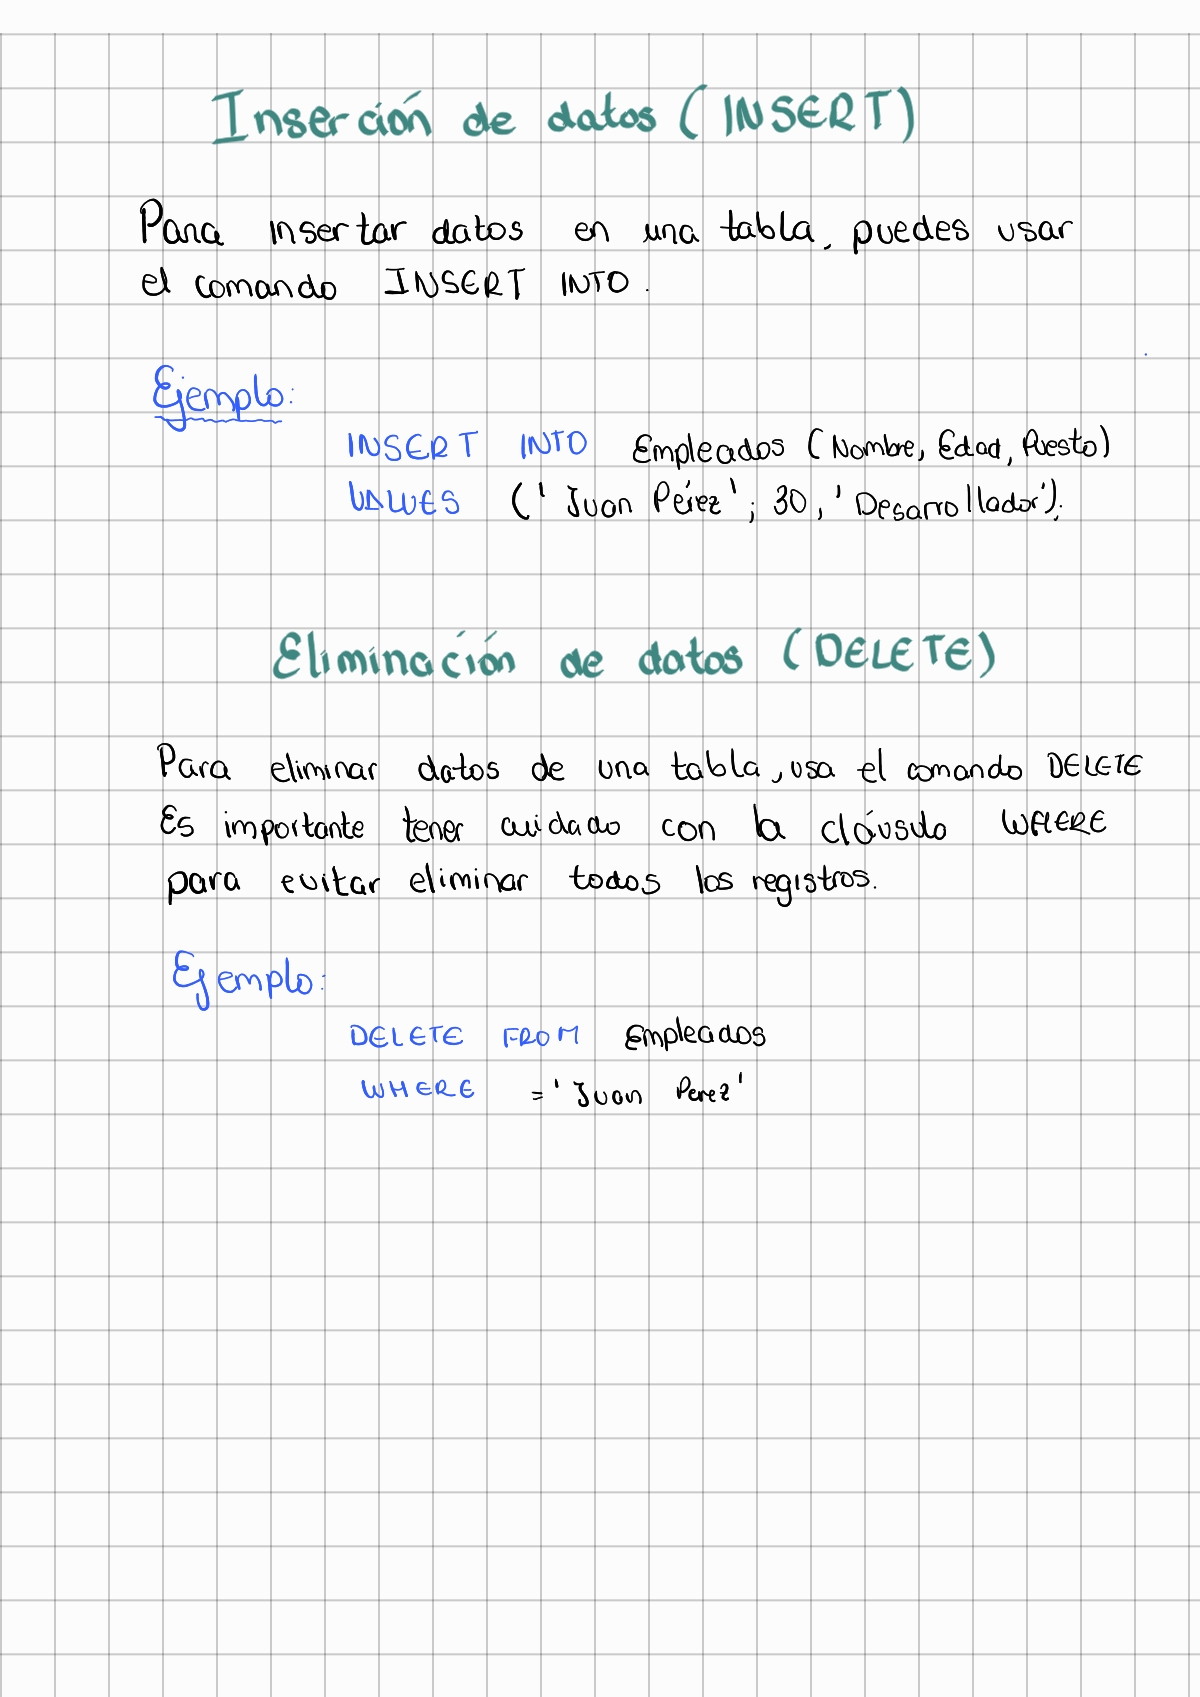 Inserción de datos (INSERT)
Para insertar datos en una tabla, puedes usar
el comando INSERT INTO.
Ejemplo:
INSERT INTO Empleados (Nombre, Edad, Puesto)
VALUES ('Juan Pérez'; 30, 'Desarrollador');
Eliminación de datos (DELETE)
Para eliminar datos de una tabla, usa el comando DELETE
Es importante tener cuidado con la cláusula WHERE
para evitar eliminar todos los registros.
Ejemplo:
DELETE FROM Empleados
WHERE ='Juan Perez'